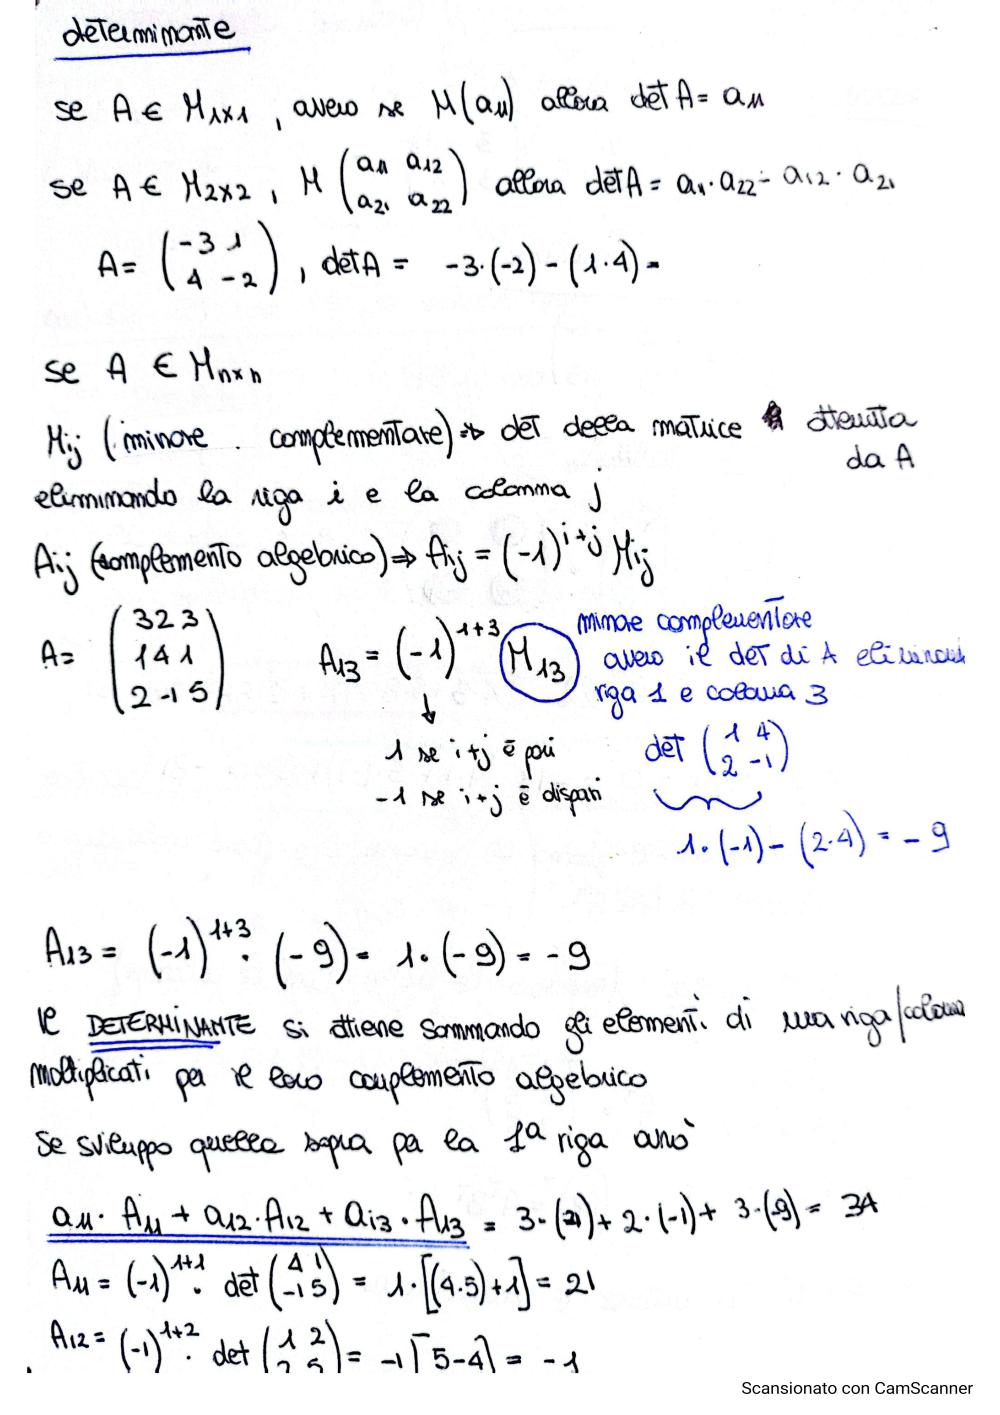 determinante
se A ∈ M1x1 , avero se M(a11) allora det A = a11
se A ∈ M2x2 , M (a11 a12 / a21 a22) allora det A = a11 · a22 - a12 · a21
A = (-3 1 / 4 -2) , det A = -3·(-2) - (1·4) =
se A ∈ Mnxn
Mij (minore complementare) => det della matrice ottenuta
da A
eliminando la riga i e la colonna j
Aij (complemento algebrico) => Aij = (-1)^i+j Mij
A = (3 2 3 / 1 4 1 / 2 -1 5) A13 = (-1)^1+3 M13
minore complementare
avero il det di A
riga 1 e colonna 3
↓
1 se i+j è pari
-1 se i+j è dispari
det (1 4 / 2 -1)
1·(-1) - (2·4) = -9
A13 = (-1)^1+3 · (-9) = 1·(-9) = -9
Il DETERMINANTE si ottiene sommando gli elementi di una riga/colonna
moltiplicati per il loro complemento algebrico
Se sviluppo quella sopra per la 1ª riga avrò
a11 · A11 + a12 · A12 + a13 · A13 = 3·(21) + 2·(-1) + 3·(-9) = 34
A11 = (-1)^1+1 · det (4 1 / -1 5) = 1·[(4·5)+1] = 21
A12 = (-1)^1+2 · det (1 2 / 2 5) = -1[5-4] = -1
Scansionato con CamScanner